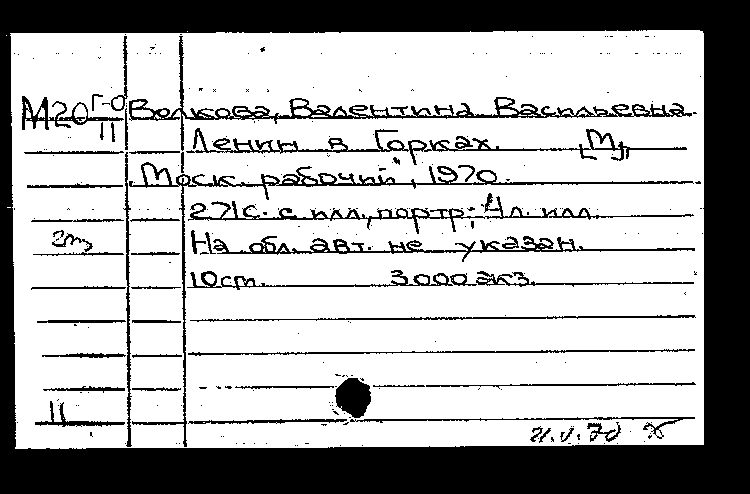 М20 Г-О Волкова, Валентина Васильевна.
11
Ленин в Горках. [М.],
"Моск. рабочий", 1970.
271с. с илл., портр; 4л. илл.
На обл. авт. не указан.
10ст. 3000экз.
11